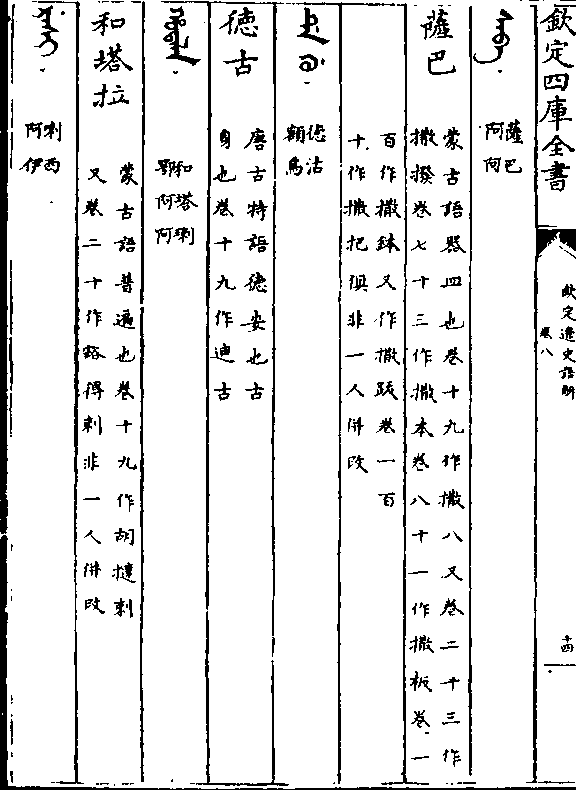 欽定四庫全書
欽定遼史語解
卷八
十四
薩巴
阿阿
薩巴
蒙古語器皿也卷十九作撒八又卷二十三作
撒撥卷七十三作撒本卷八十一作撒板卷一
百作撒鉢又作撒跋卷一百
十作撒把俱非一人併改
德沽
額烏
德古
唐古特語德安也古
身也卷十九作迪古
和塔喇
鄂阿阿
和塔拉
蒙古語普遍也卷十九作胡撻剌
又卷二十作豁得剌非一人併改
喇西
阿伊